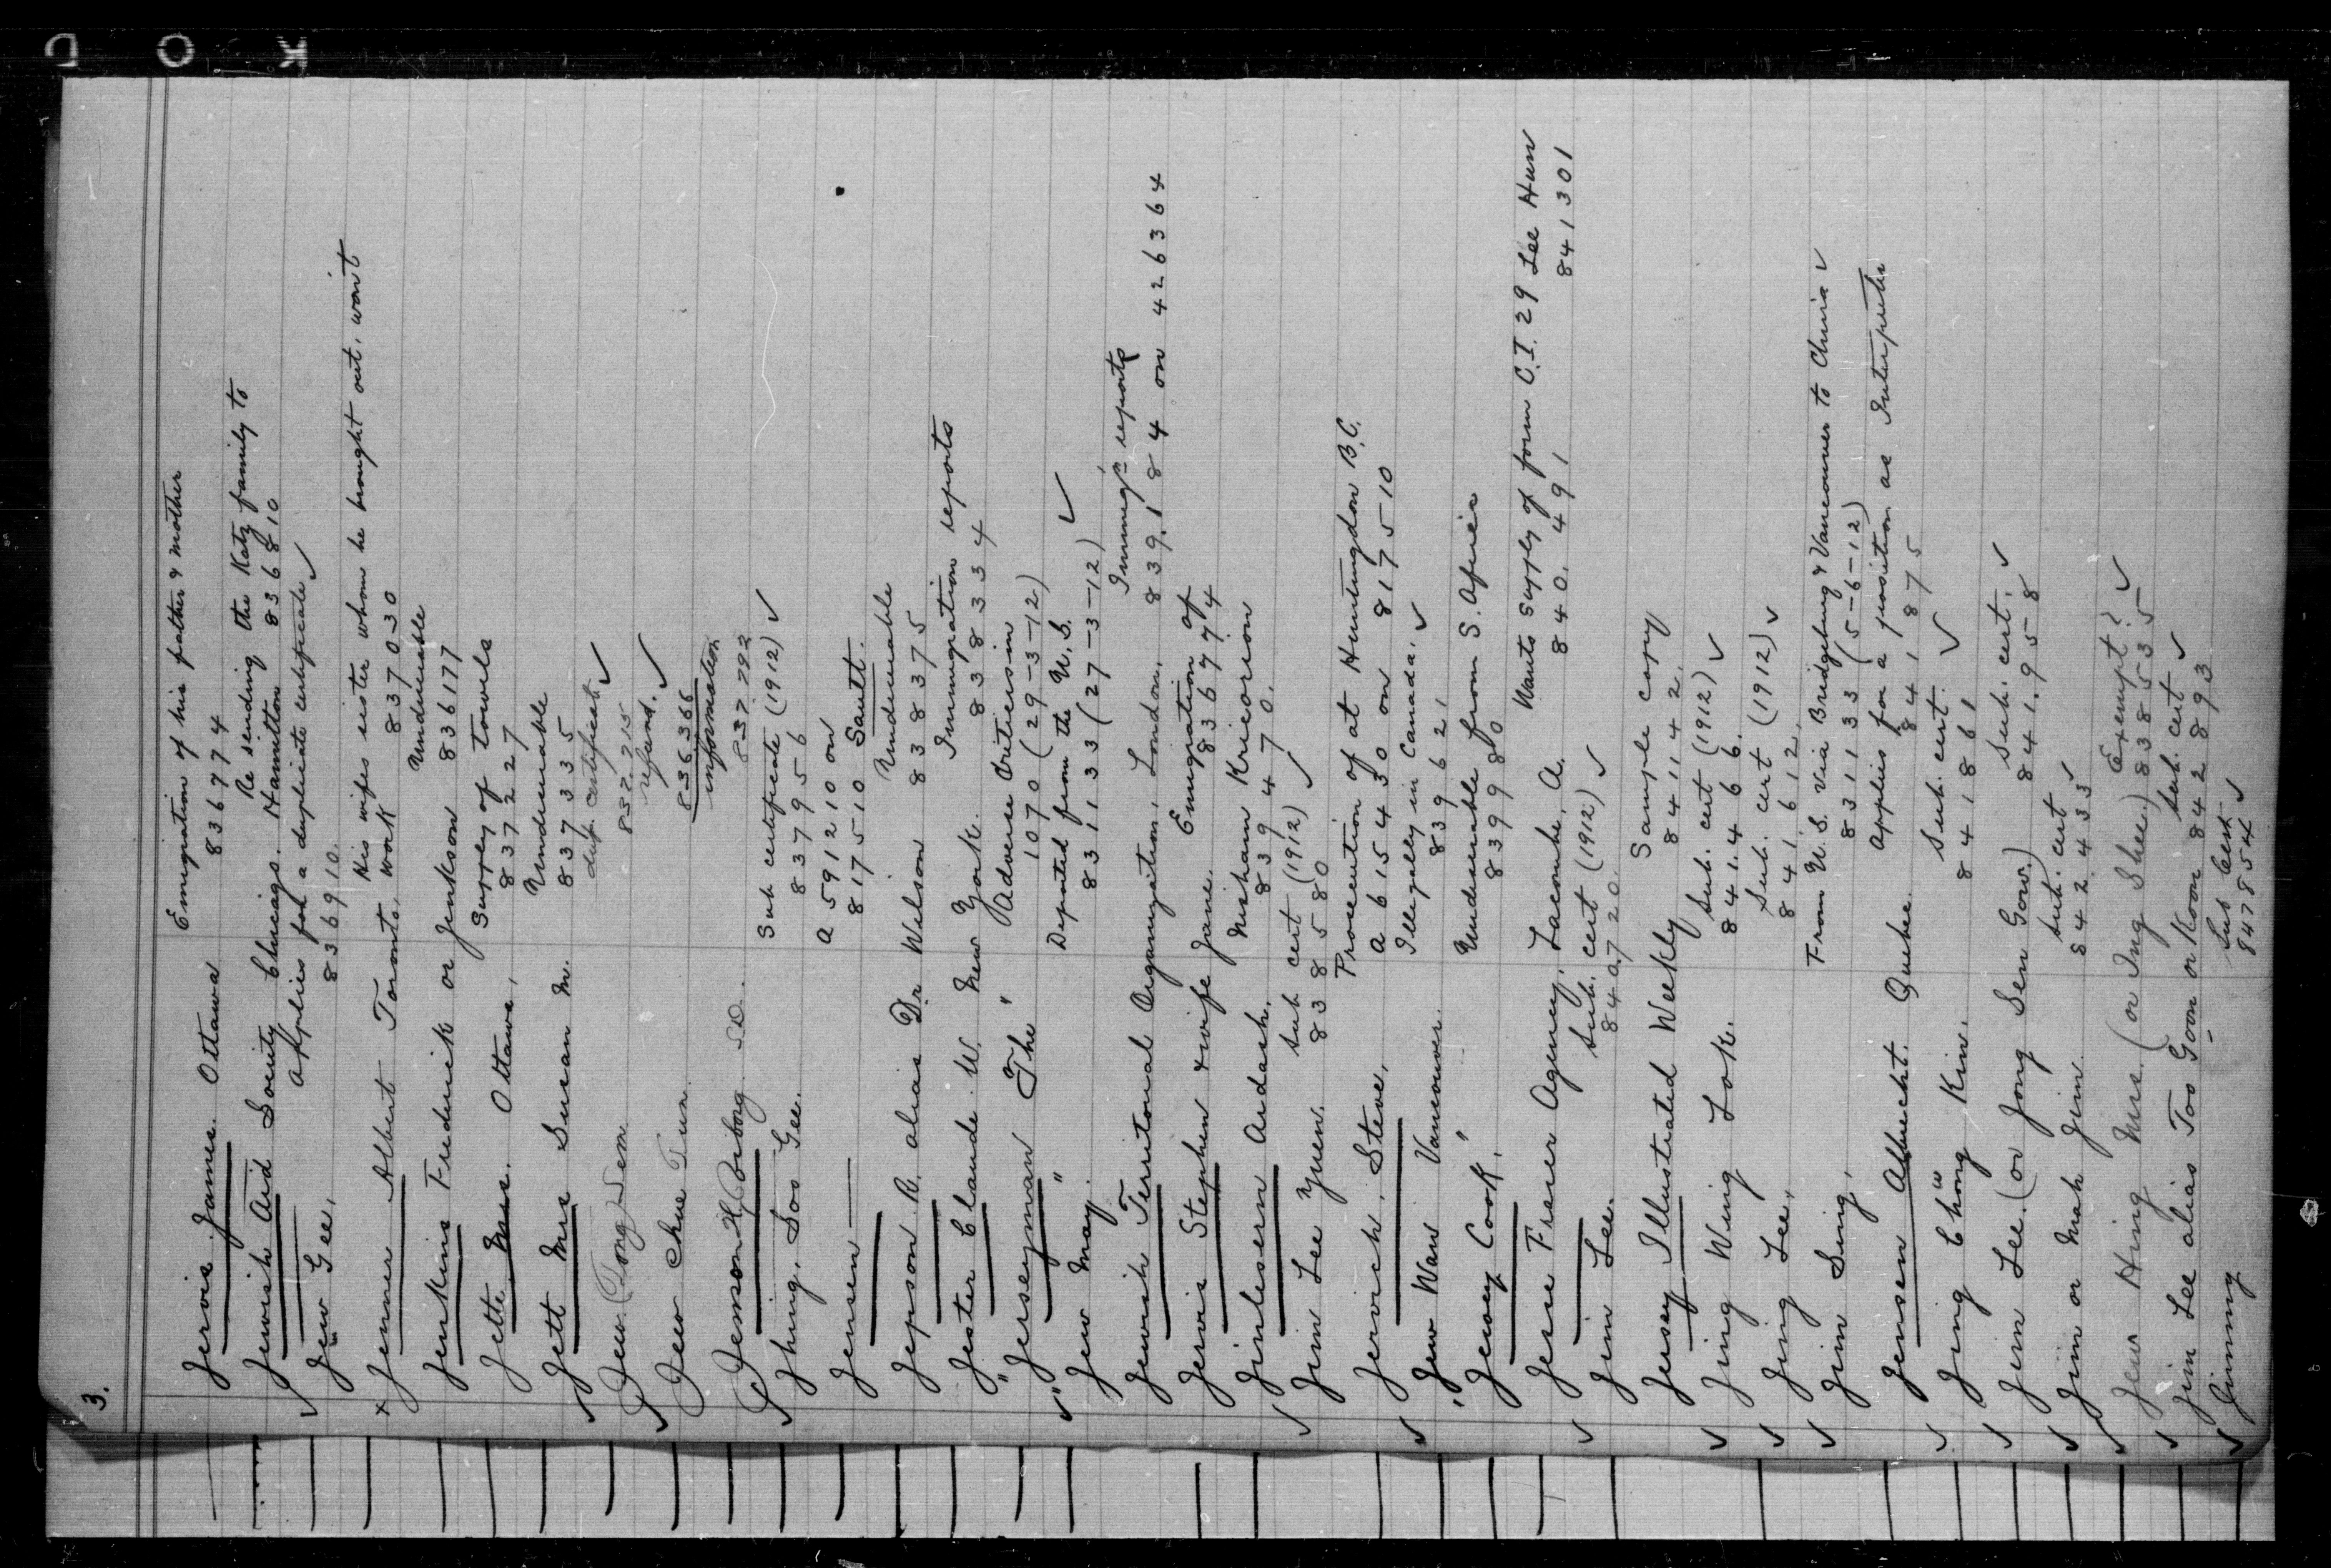 3.
Emigration of his father & mother
Jervis James. Ottawa 836774
Re sending the Katz family to
Jewish Aid Society Chicago. Hamilton 836810
Applies for a duplicate certificate ✓
✓ Jew Gee, 836910.
His wifes sister whom he brought out, won't
x Jenner Albert Toronto. work 837030
Undesirable
Jenkins Frederick or Jenkson 836177
Supply of towels
Jette Mrs. Ottawa, 837227
Undesirable
Jett Mrs Susan M. 837335
dup. certificate ✓
✓ Jew (Tong) Sem 837.215
refund. ✓
✓ Jew Chue Tun. 836366
information
Jemson H. S.D. 837.292
Sub certificate (1912) ✓
✓ Jhing, Soo Gee. 837956
A 591210 on
Jensen 817510 Sault.
Undesirable
Jepson R. alias Dr. Wilson 838375
Immigration reports
Jester Claude W. New York. 838334
Adverse Criticism
" Jerseyman The " 1070 (29-3-12)
Deported from the U.S. ✓
✓ " Jew May. " 831133 (27-3-12)
Immig'n reports
Jewish Territorial Organization, London. 839184 on 426364
Emigration of
Jervis Stephen & wife Jane. 836774
Nisham Kricorion
Jinlesern Ardash. 839470.
Sub cert (1912) ✓
✓ Jim Lee Yuen. 838580
Prosecution of at Huntingdon B.C.
Jervich, Steve, A 615430 on 817510
Illegally in Canada. ✓
✓ Jew Wan Vancouver. 839621
Undesirable from S. Africa
' Jersey Cook, ' 839980
Wants supply of form C.I. 29 Lee Hun
Jesse Fraser Agency, Lacombe, A. 840.491 841301
Sub. cert (1912) ✓
✓ Jim Lee. 840720.
Sample copy
Jersey Illustrated Weekly 841142.
Sub. cert (1912) ✓
✓ Jing Wing Lok. 841.466.
Sub. cert (1912) ✓
✓ Jing Lee, 841.612.
From U.S. via Bridgeburg & Vancouver to China ✓
✓ Jim Sing, 831133 (5-6-12)
Applies for a position as Interpreter
Jensen Albrecht. Quebec. 841875
Sub. cert. ✓
✓ Jing Chong Kin. 841861
Sub. cert. ✓
✓ Jim Lee. (or Jong Sen Gow.) 841.958
Sub. cert ✓
✓ Jim or Mah Jim. 842.433
Exempt? ✓
✓ Jew Hing Mrs. (or Ing Shee.) 838535
Sub. cert ✓
✓ Jim Lee alias Too Goon or Koon 842893
Sub Cert ✓
✓ Jimmy 847854